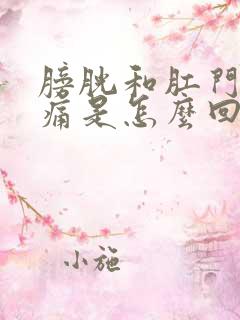 膀胱和肛門
痛是怎麼回
小施